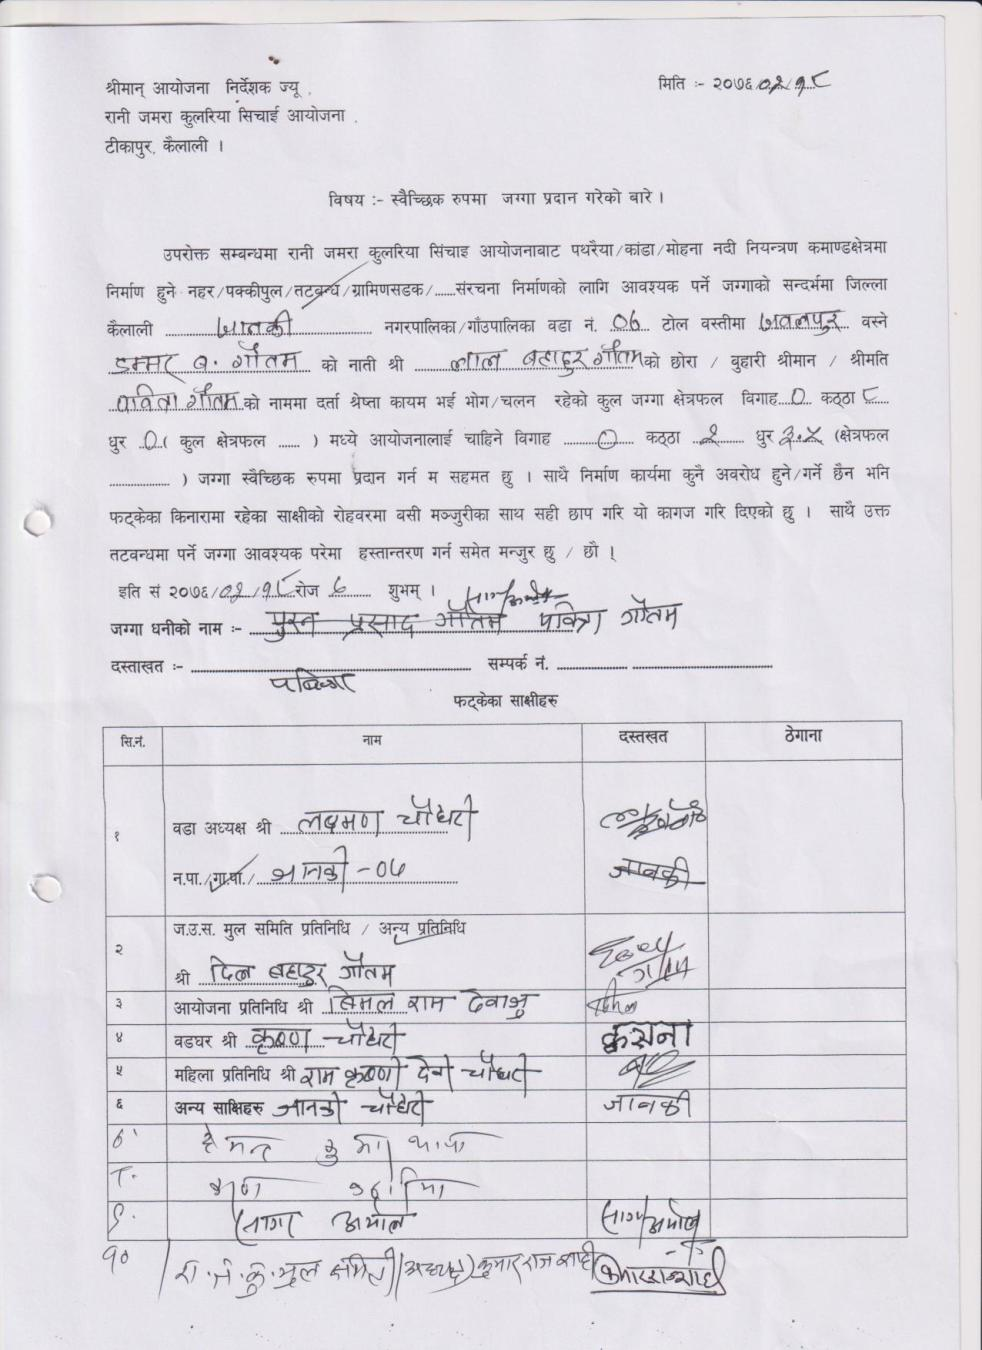 श्रीमान् आयोजना निर्देशक ज्यू , मिति :- २०७६/०२/१८
रानी जमरा कुलरिया सिचाई आयोजना .
टीकापुर, कैलाली ।
विषय :- स्वैच्छिक रुपमा जग्गा प्रदान गरेको बारे ।
उपरोक्त सम्बन्धमा रानी जमरा कुलरिया सिंचाइ आयोजनाबाट पथरैया/कांडा/मोहना नदी नियन्त्रण कमाण्डक्षेत्रमा
निर्माण हुने नहर/पक्कीपुल/तटबन्ध/ग्रामिणसडक/......संरचना निर्माणको लागि आवश्यक पर्ने जग्गाको सन्दर्भमा जिल्ला
कैलाली जानकी नगरपालिका/गाँउपालिका वडा नं. ०६ टोल वस्तीमा वस्ने
डम्मर ब. गौतम को नाती श्री लाल बहादुर गौतम को छोरा / बुहारी श्रीमान / श्रीमति
पवित्रा गौतम को नाममा दर्ता श्रेष्ता कायम भई भोग/चलन रहेको कुल जग्गा क्षेत्रफल विगाह ० कठ्ठा ८
धुर ० ( कुल क्षेत्रफल ...... ) मध्ये आयोजनालाई चाहिने विगाह ० कठ्ठा २ धुर ३.५ (क्षेत्रफल
.................. ) जग्गा स्वैच्छिक रुपमा प्रदान गर्न म सहमत छु । साथै निर्माण कार्यमा कुनै अवरोध हुने/गर्ने छैन भनि
फट्केका किनारामा रहेका साक्षीको रोहवरमा वसी मञ्जुरीका साथ सही छाप गरि यो कागज गरि दिएको छु । साथै उक्त
तटवन्धमा पर्ने जग्गा आवश्यक परेमा हस्तान्तरण गर्न समेत मन्जुर छु / छौ ।
इति सं २०७६/०२/१८ रोज ६ शुभम् ।
जग्गा धनीको नाम :- पुरन प्रसाद गौतम पवित्रा गौतम
दस्ताखत :- पबित्रा सम्पर्क नं. ..................
फट्केका साक्षीहरु
सि.नं. नाम दस्तखत ठेगाना
१ वडा अध्यक्ष श्री लक्ष्मण चौधरी
न.पा./गा.पा./ जानकी -०६ जानकी
२ ज.उ.स. मुल समिति प्रतिनिधि / अन्य प्रतिनिधि
श्री दिल बहादुर गौतम
३ आयोजना प्रतिनिधि श्री बिमल राम
४ वडघर श्री कृष्ण चौधरी
५ महिला प्रतिनिधि श्री राम कृष्णी देवी चौधरी
६ अन्य साक्षिहरु जानकी चौधरी जानकी
७. हेमन्त
८.
९. सागर
१० रा.ज.कु. मुल समिति (अध्यक्ष) कुमार राज शाही